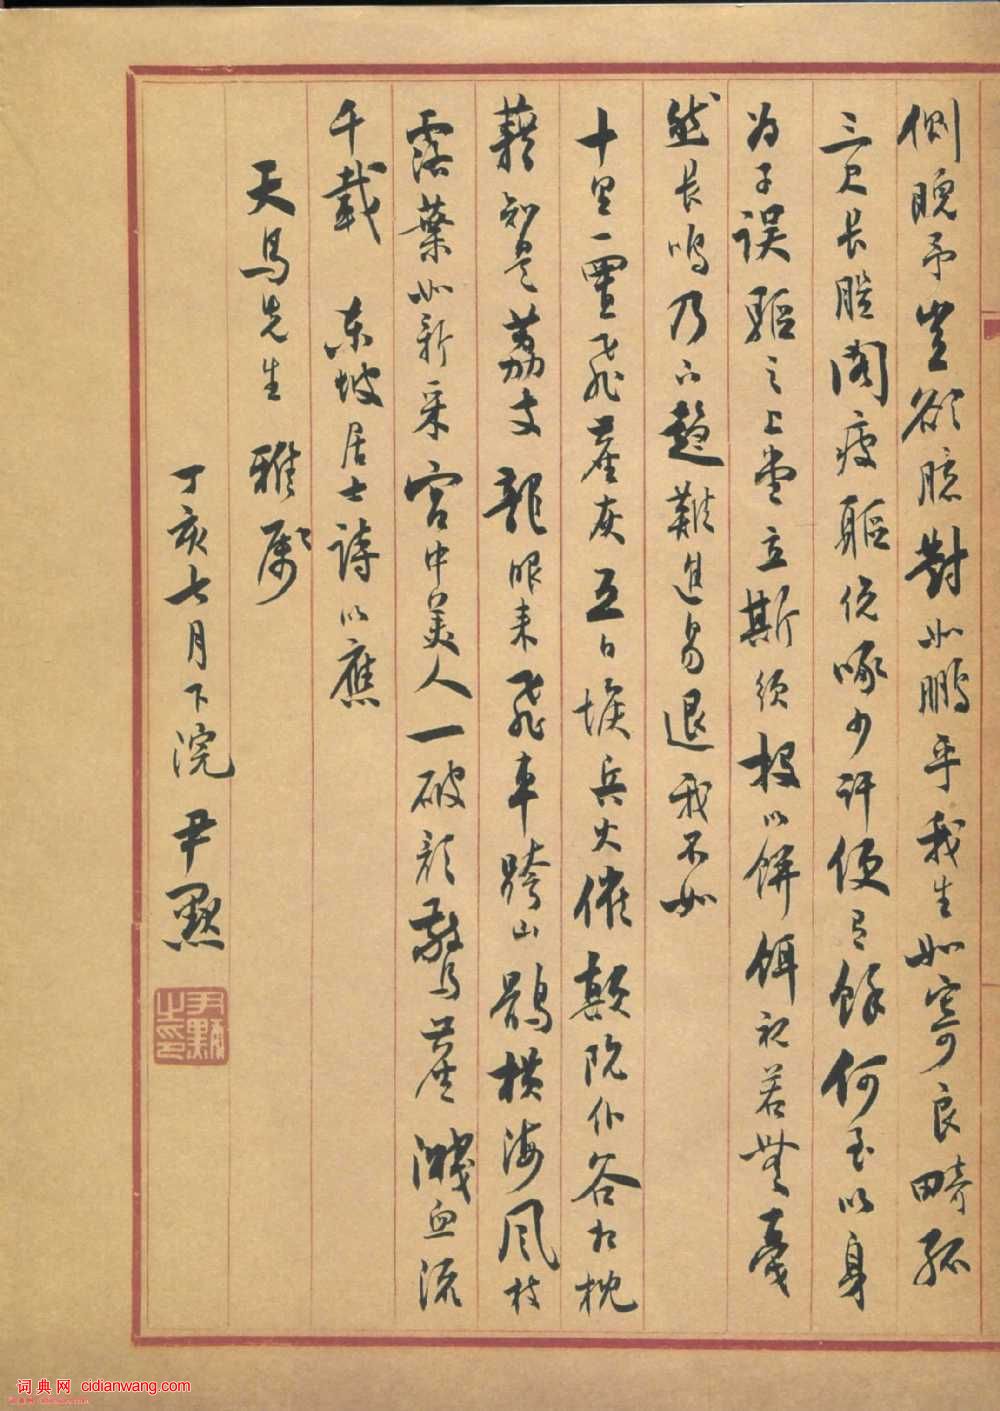 側睨予豈欲臆對如鵩乎我生如寄良畸孤
三尺長脛閣瘦軀俛啄少許便有餘何至以身
為子娛驅之上堂立斯須投以餅餌視若無戛
然長鳴乃下趨難進易退我不如
十里一置飛塵灰五里一堠兵火催顛阬仆谷相枕
藉知是荔支龍眼来飛車跨山鶻橫海風枝
露葉如新采宮中美人一破顏驚塵濺血流
千載 東坡居士詩以應
天馬先生 雅屬
丁亥七月下浣 尹默
尹默之印
词典网 cidianwang.com